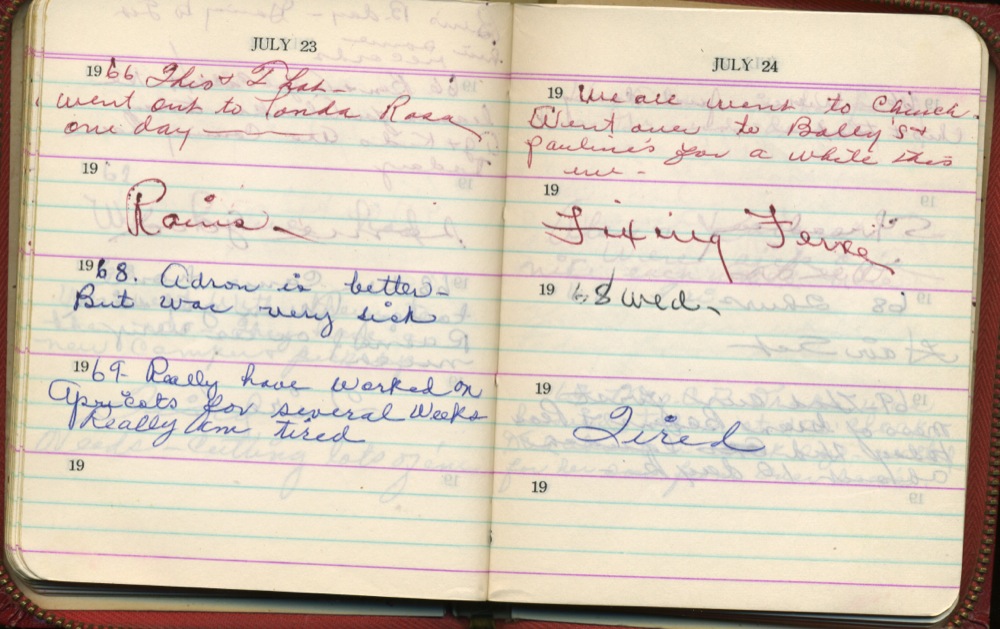 JULY 23
1966 This & I
went out to Ponda Rosa
one day
19
Rains
1968. Adron is better-
But was very sick
1969- Really have worked on
Apricots for several weeks
Really am tired
19
JULY 24
19 We all went to Church
Went over to Bobby's &
Pauline's for a while this
eve-
19
Fixing Fence
1968 Wed.
19
Tired
19